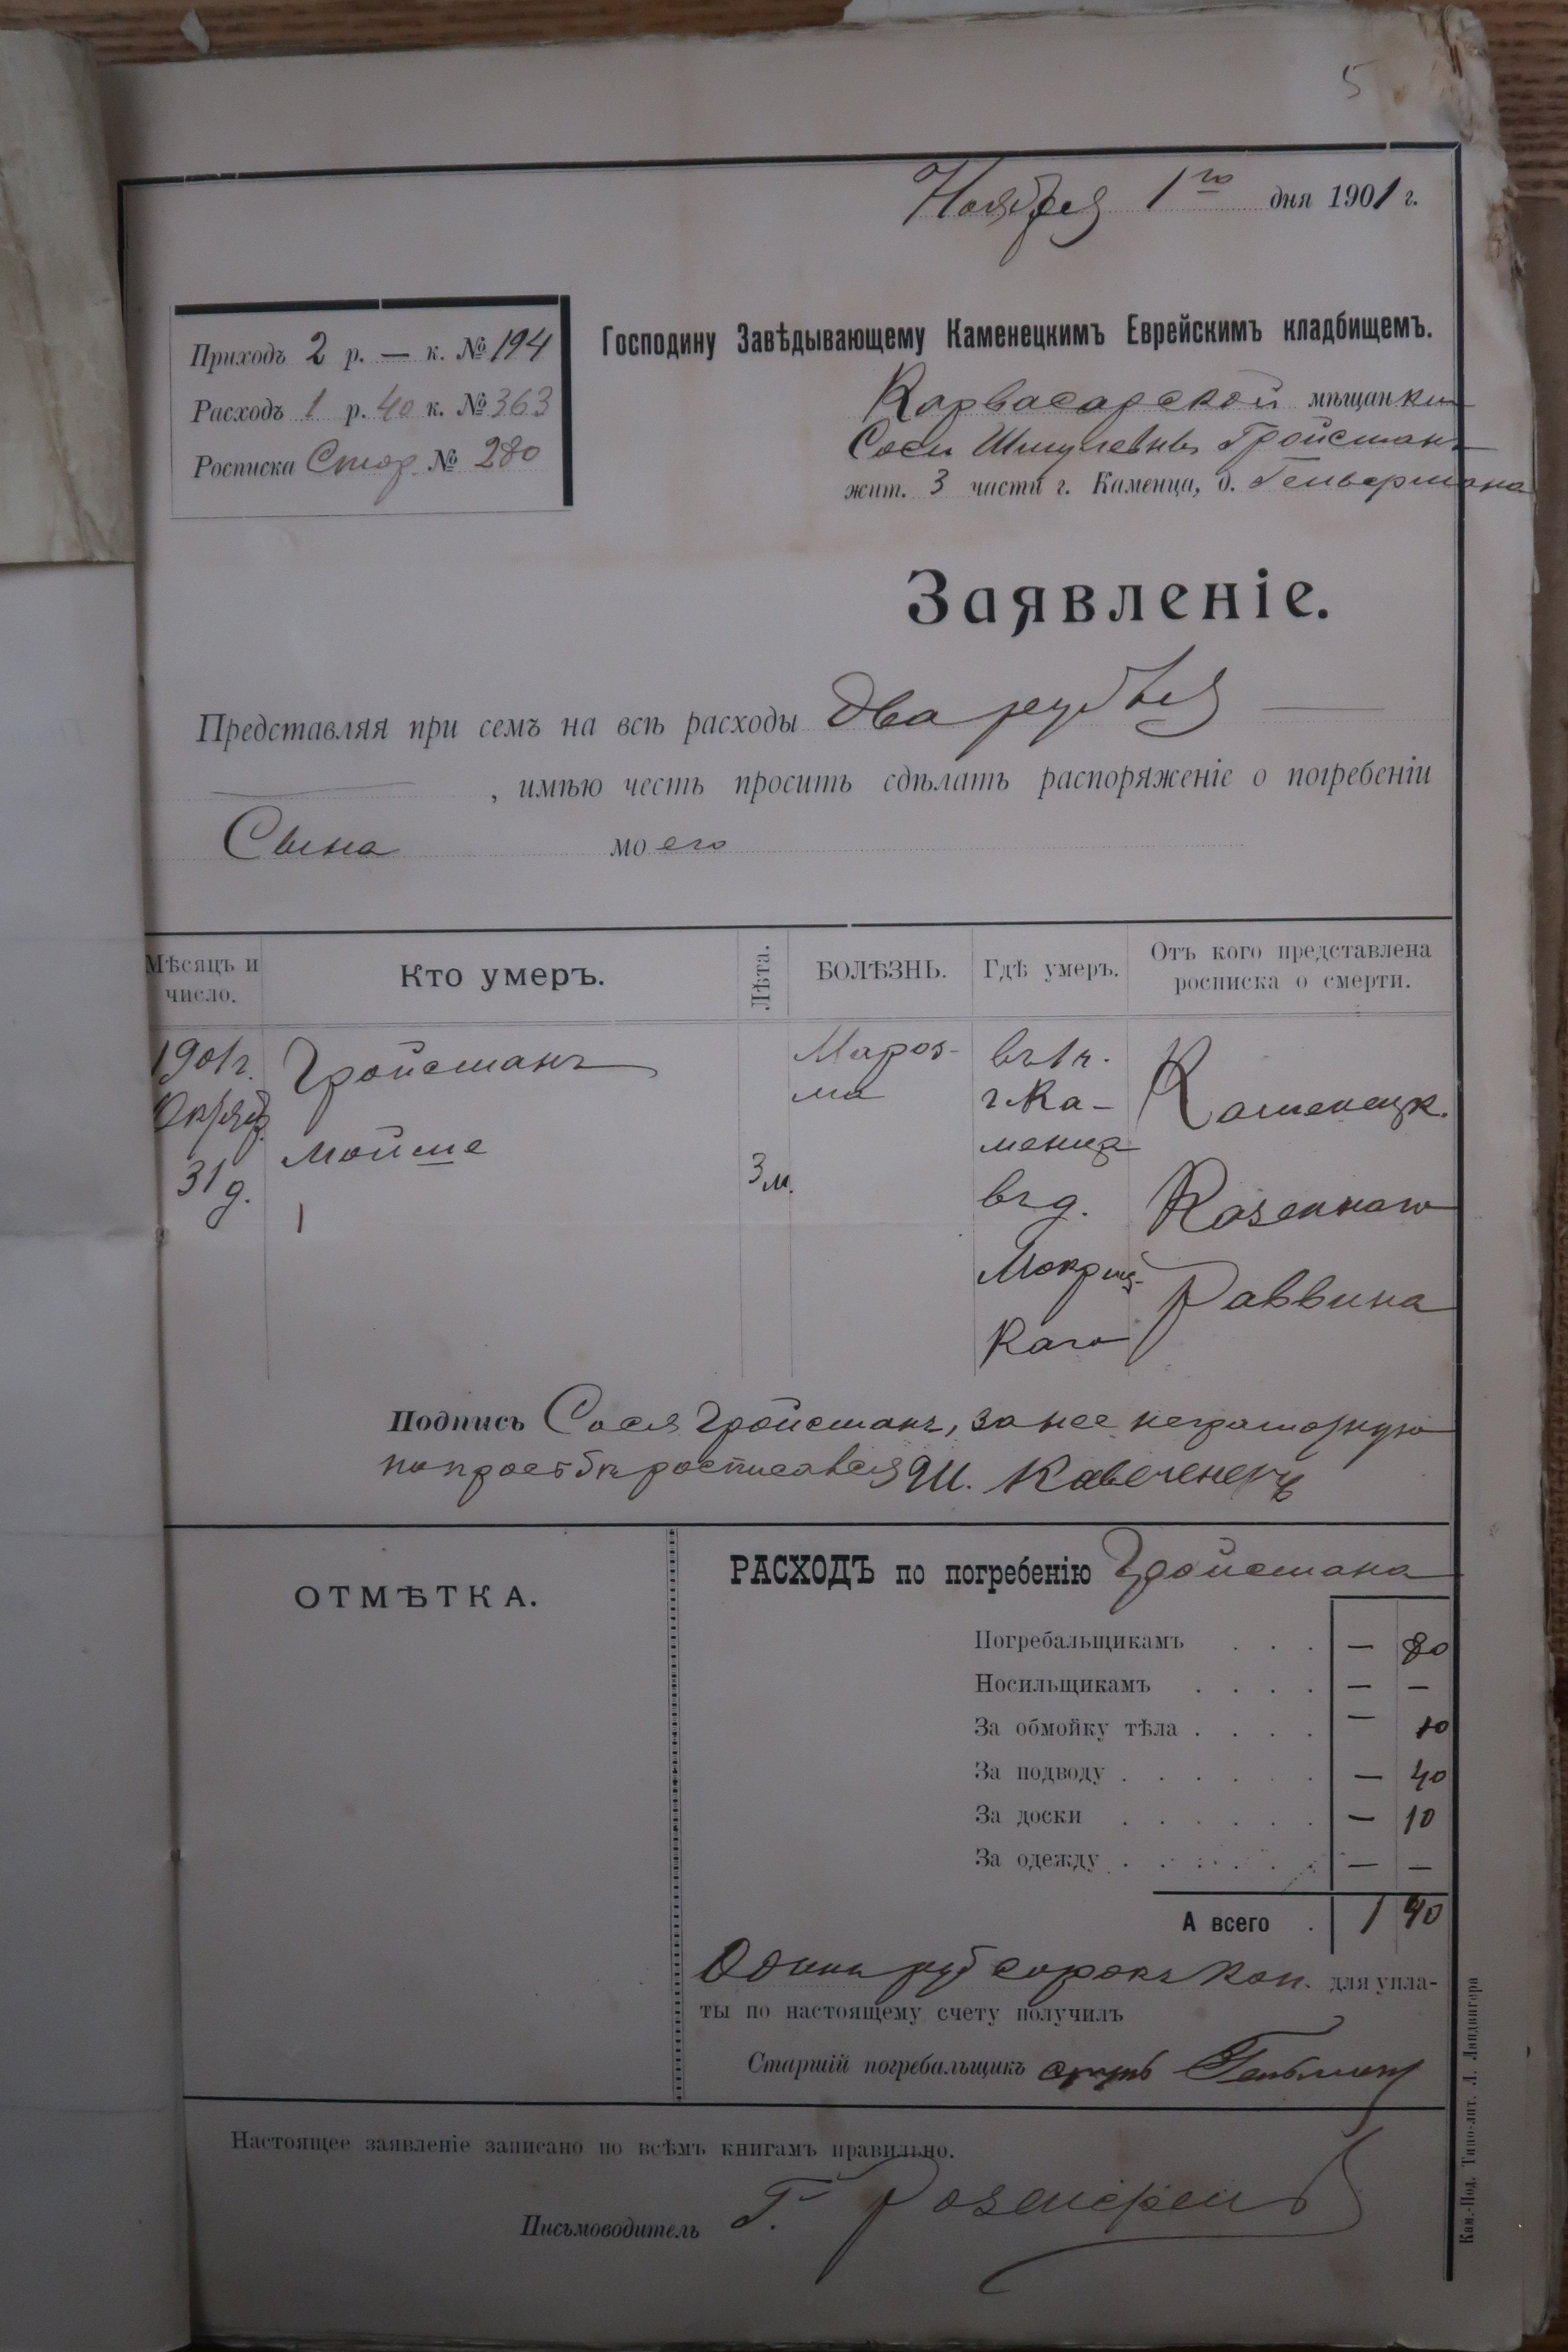 5
Ноября 1го дня 1901 г.
Приходъ 2 р. — к. № 194
Расходъ 1 р. 40 к. № 363
Росписка Стор. № 280
Господину Завѣдывающему Каменецкимъ Еврейскимъ кладбищемъ.
Карвасарской мѣщанки
Соси Шмулевны Гройсманъ
жит. 3 части г. Каменца, д.
Заявленіе.
Представляя при семъ на всѣ расходы два рубля
, имѣю честь просить сдѣлать распоряженіе о погребеніи
Сына моего
Мѣсяцъ и число.
Кто умеръ.
Лѣта.
БОЛѢЗНЬ.
Гдѣ умеръ.
Отъ кого представлена росписка о смерти.
1901г.
Октяб.
31 д.
Гройсманъ
Мойше
1
3 м.
Мароз-
ма
въ 1 ч.
г. Ка-
менца
въ д.
Мокриц-
каго
Каменецк.
Казеннаго
Раввина
Подпись Сося Гройсманъ, за нее неграмотную
по просьбѣ росписался Ш.
ОТМѢТКА.
РАСХОДЪ по погребенію Гройсмана
Погребальщикамъ . . . — 80
Носильщикамъ . . . . — —
За обмойку тѣла . . . . — 10
За подводу . . . . . . — 40
За доски . . . . . . — 10
За одежду . . . . . . — —
А всего . 1 40
Одинъ руб сорокъ коп. для упла-
ты по настоящему счету получилъ
Старшій погребальщикъ
Настоящее заявленіе записано по всѣмъ книгамъ правильно.
Письмоводитель Г.
Кам.-Под. Типо-лит. Л. Ландвигера